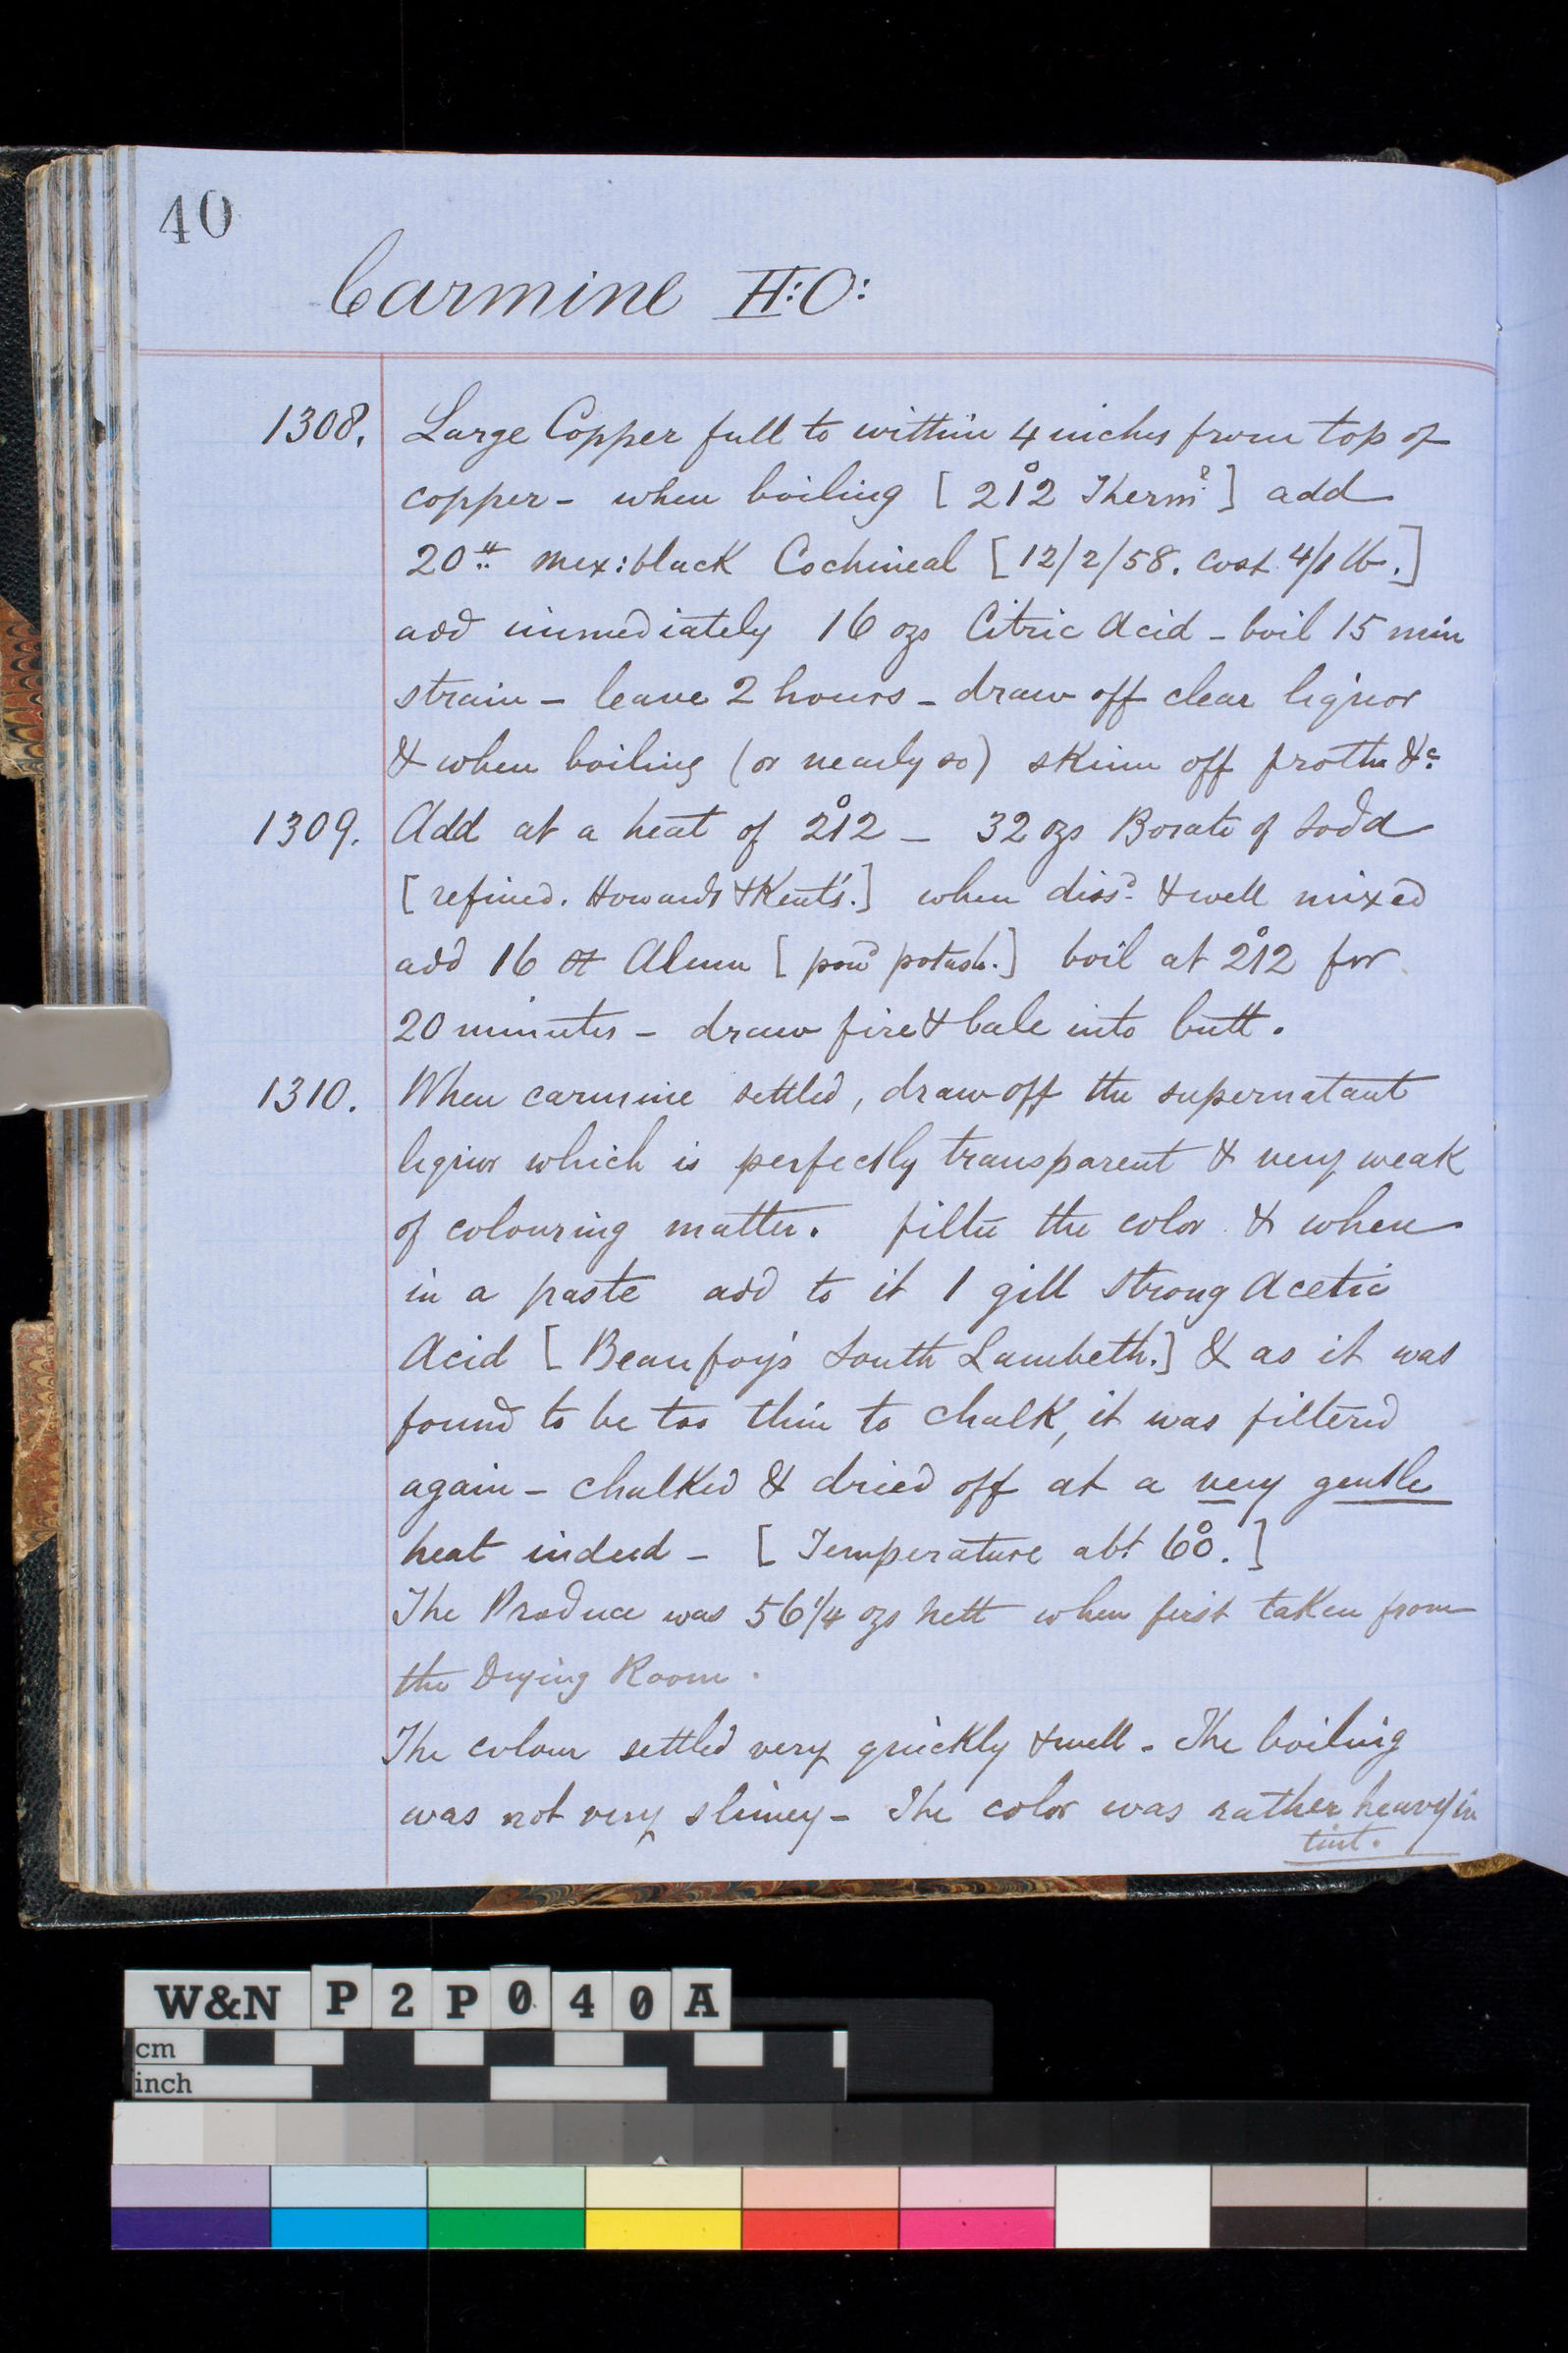 40
Carmine H:O:
1308. Large Copper full to within 4 inches from top of
copper - when boiling [212° Therm:r] add
20lb mex: black Cochineal [12/2/58. Cost 4/1 lb.]
add immediately 16 ozs Citric Acid - boil 15 min
strain - leave 2 hours - draw off clear liquor
& when boiling (or nearly so) skim off froth &c
1309. Add at a heat of 212° - 32 ozs Borate of Soda
[refined. Howards & Kent's.] when dissd & well mixed
add 16 oz Alum [powd potash.] boil at 212° for
20 minutes - draw fire & bale into butt.
1310. When carmine settled, draw off the supernatant
liquor which is perfectly transparent & very weak
of colouring matter. filter the color & when
in a paste add to it 1 gill Strong Acetic
Acid [Beaufoy's South Lambeth.] & as it was
found to be too thin to chalk, it was filtered
again - chalked & dried off at a very gentle
heat indeed - [Temperature abt 60°.]
The Produce was 56 1/4 ozs nett when first taken from
the Drying Room.
The colour settled very quickly & well - The boiling
was not very slimey - The color was rather heavy in
tint.
W&N P2P040A
cm
inch